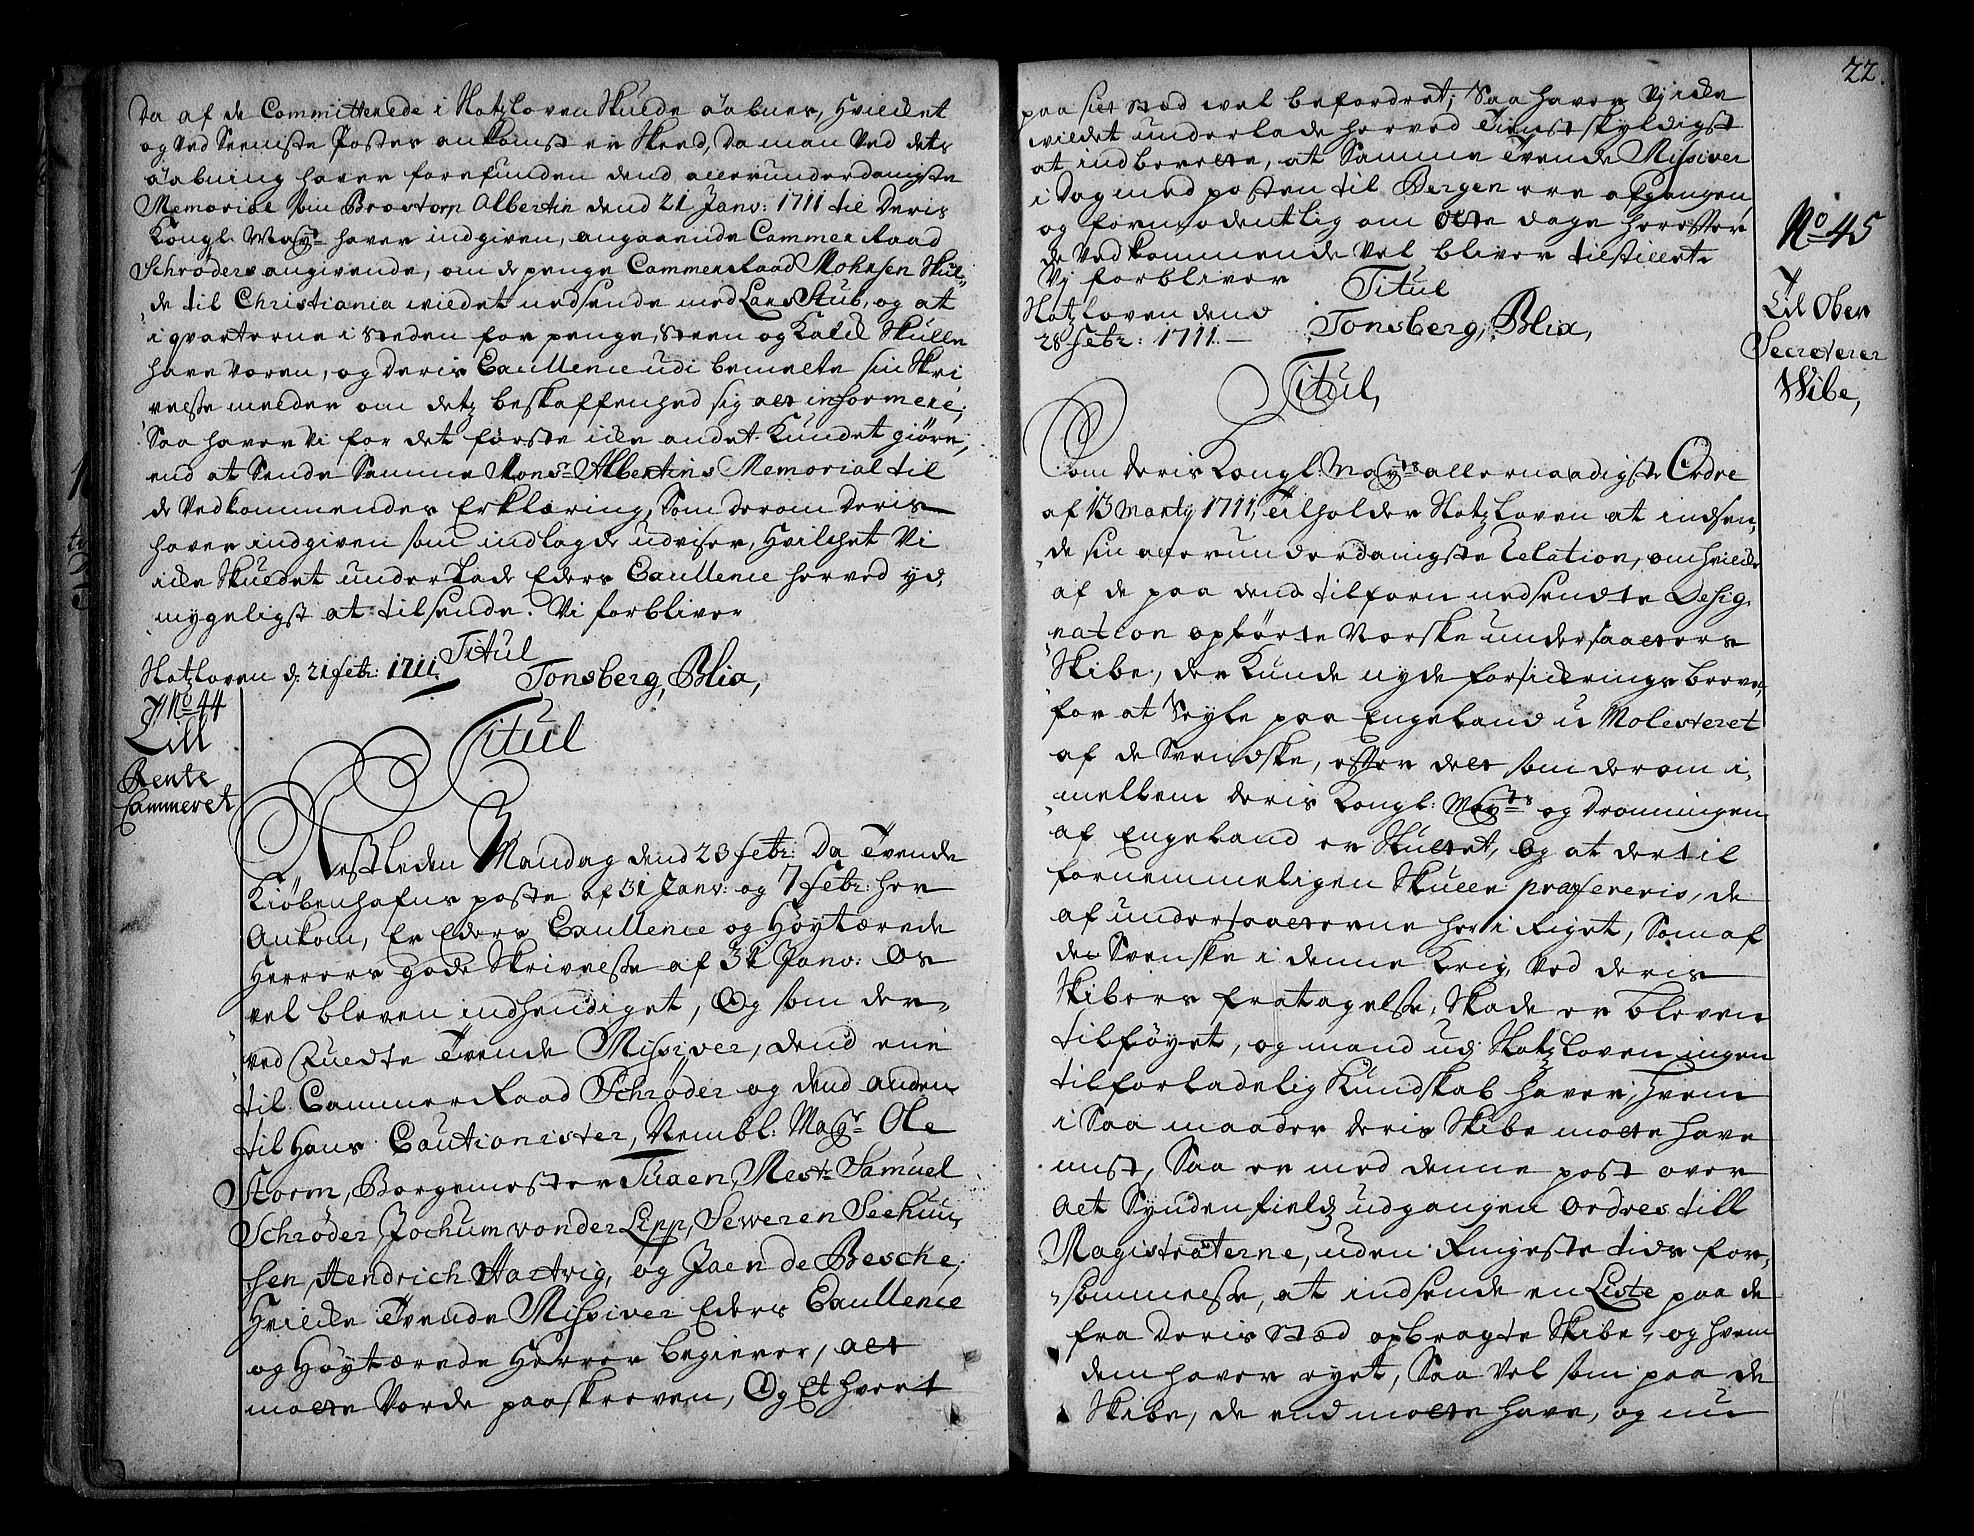 Da af de Committerede i Slotzloven Skulde aabnes, Hvilcket
og Ved Seeniste Postes ankomst er Skeed, Da man Ved dets
aabning haver forefunden dend allerunderdanigste
Memorial som Brostorp Albertin dend 21 Janv: 1711 til Deris
Kongl. Mayt. haver indgiven, angaaende Cammer Raad
Schrøders angivende, om de penge Cammerraad Mohrsen Skul-
de til Christiania villet nedsende med Lars Stub, og at
i qvarterne i steden for penge, Steen og Kalck Skulle
have voren, og deris Excellence udi bemelte sin Skri-
velsse melder om detz beskaffenhed sig at informere;
Saa haver Vi for det første icke andet Kundet giøre,
end at Sende Samme Mons:r Albertins Memorial til
de Vedkommendes Erklæring, Som derom deris
haver indgiven som indlagde udviser, Hvilchet Vi
icke Skuldet underlade Eders Excellence herved yd-
mygeligst at tilsende. Vi forbliver
Titul
Slotzloven d: 21 Febr: 1711. Tonsberg, Blix,
No 44
Till
Rente
Cammeret
Titul
Nestleden Mandag dend 23 Febr: Da Tvende
Kiøbenhafns poste af 31 Janv: og 7 Febr: her
Ankom, Er Eders Excellence og Høytærede
Herrers gode Skrivelsse af 31 Janv: Os
vel bleven indhendiget, Og som der-
ved fuldte Tvende Missiver, dend ene
til Cammer Raad Schrøder og dend anden
til Hans Cautionister, Nembl: Mayr Ole
Storm, Borgemester Tuaen, Mestr Samuel
Schrøder, Jochum von der Lipp, Seweren Seehuu-
sen, Hendrich Hartvig, og Jaen de Besche,
Hvilcke Tvende Missiver Eders Excellence
og Høytærede Herrer begierer, at
motte Vorde paaskreven, Og Et hvert
22.
paa sit stæd vel befordret; Saa haver Vj icke
villdet underlade herved Tienstskyldigst
at indberette, at Samme Tvende Missiver
i Dag med posten til Bergen ere afgangen
og formodentlig om Otte dage herefter
de Vedkommende Vel bliver tilstillet.
Vj forbliver Titul
Slotzloven dend
28 Febr: 1711. Tonsberg, Blix,
No 45
Til Ober
Secreterer
Wibe,
Titul,
Som deris Kongl: Mayts allernaadigste Ordre
af 13 Marty 1711, Tilholder Slotzloven at indsen-
de sin allerunderdanigste Relation, om hvilcke
af de paa dend tilforn nedsendte Desig-
nation opførte Norske undersaatters
Skibe, der Kunde nyde forsickrings breve,
for at Seyle paa Engeland u Molesteret
af de Svendske, efter det som derom i-
mellem deris Kongl: Mayts og Dronningen
af Engeland er Skuttet, og at dertil
fornemmeligen Skulle præfereris, de
af undersaatterne her i Riget, Som af
de Svenske i denne Krig, Ved deris
Skibers fratagelsse, Skade er bleven
tilføyet, og mand udj Slotzloven ingen
tilforladelig Kundskab haver, hvem
i Saa maader deris Skibe motte have
mist, Saa er med denne post over
alt Syndenfieldz udgangen Ordres till
Magistraterne, uden Ringeste tids for-
sømmelsse, at indsende en Liste paa de
fra deris stæd opbragte Skibe, og hvem
dem haver eyet, Saa Vel som paa de
Skibe, de end motte have, og nu